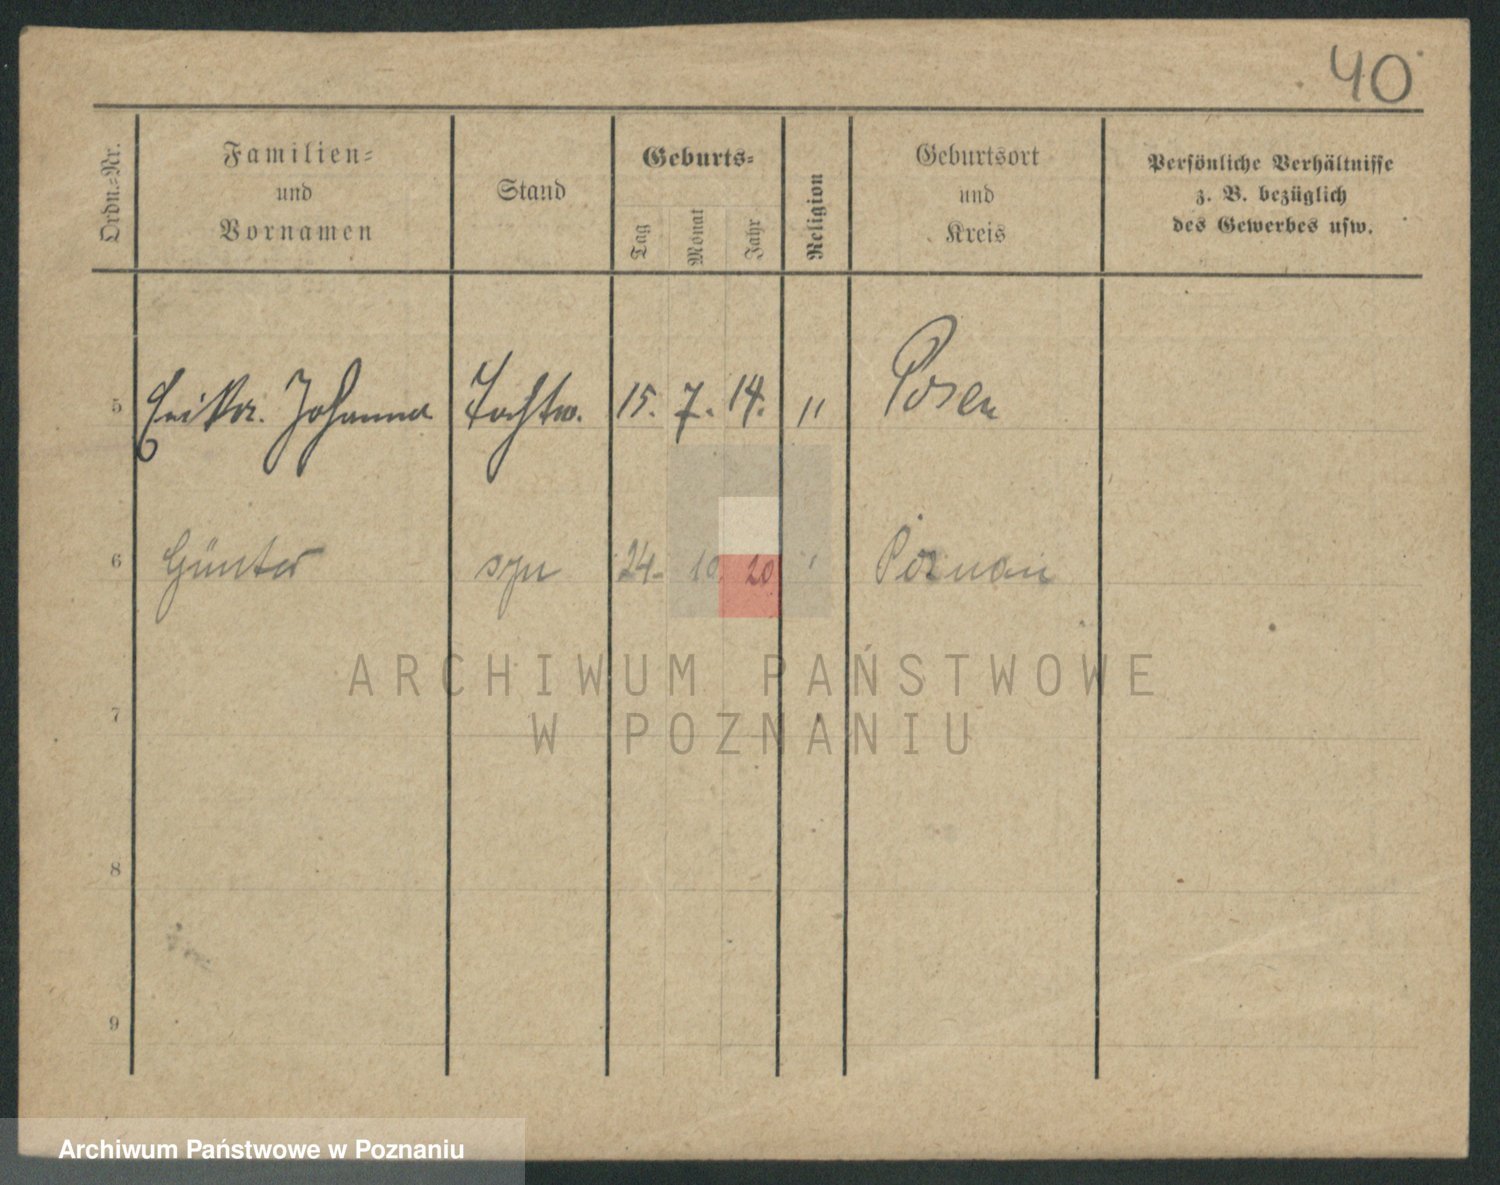 40
Ordn.-Nr.
Familien-
und
Vornamen
Stand
Geburts-
Tag
Monat
Jahr
Religion
Geburtsort
und
Kreis
Persönliche Verhältnisse
z. B. bezüglich
des Gewerbes usw.
5 Erika Johanna Tochter. 15. 7. 14. " Posen
6 Günter syn 24. 10. 20 " Poznań
ARCHIWUM PAŃSTWOWE
W POZNANIU
7
8
9
Archiwum Państwowe w Poznaniu